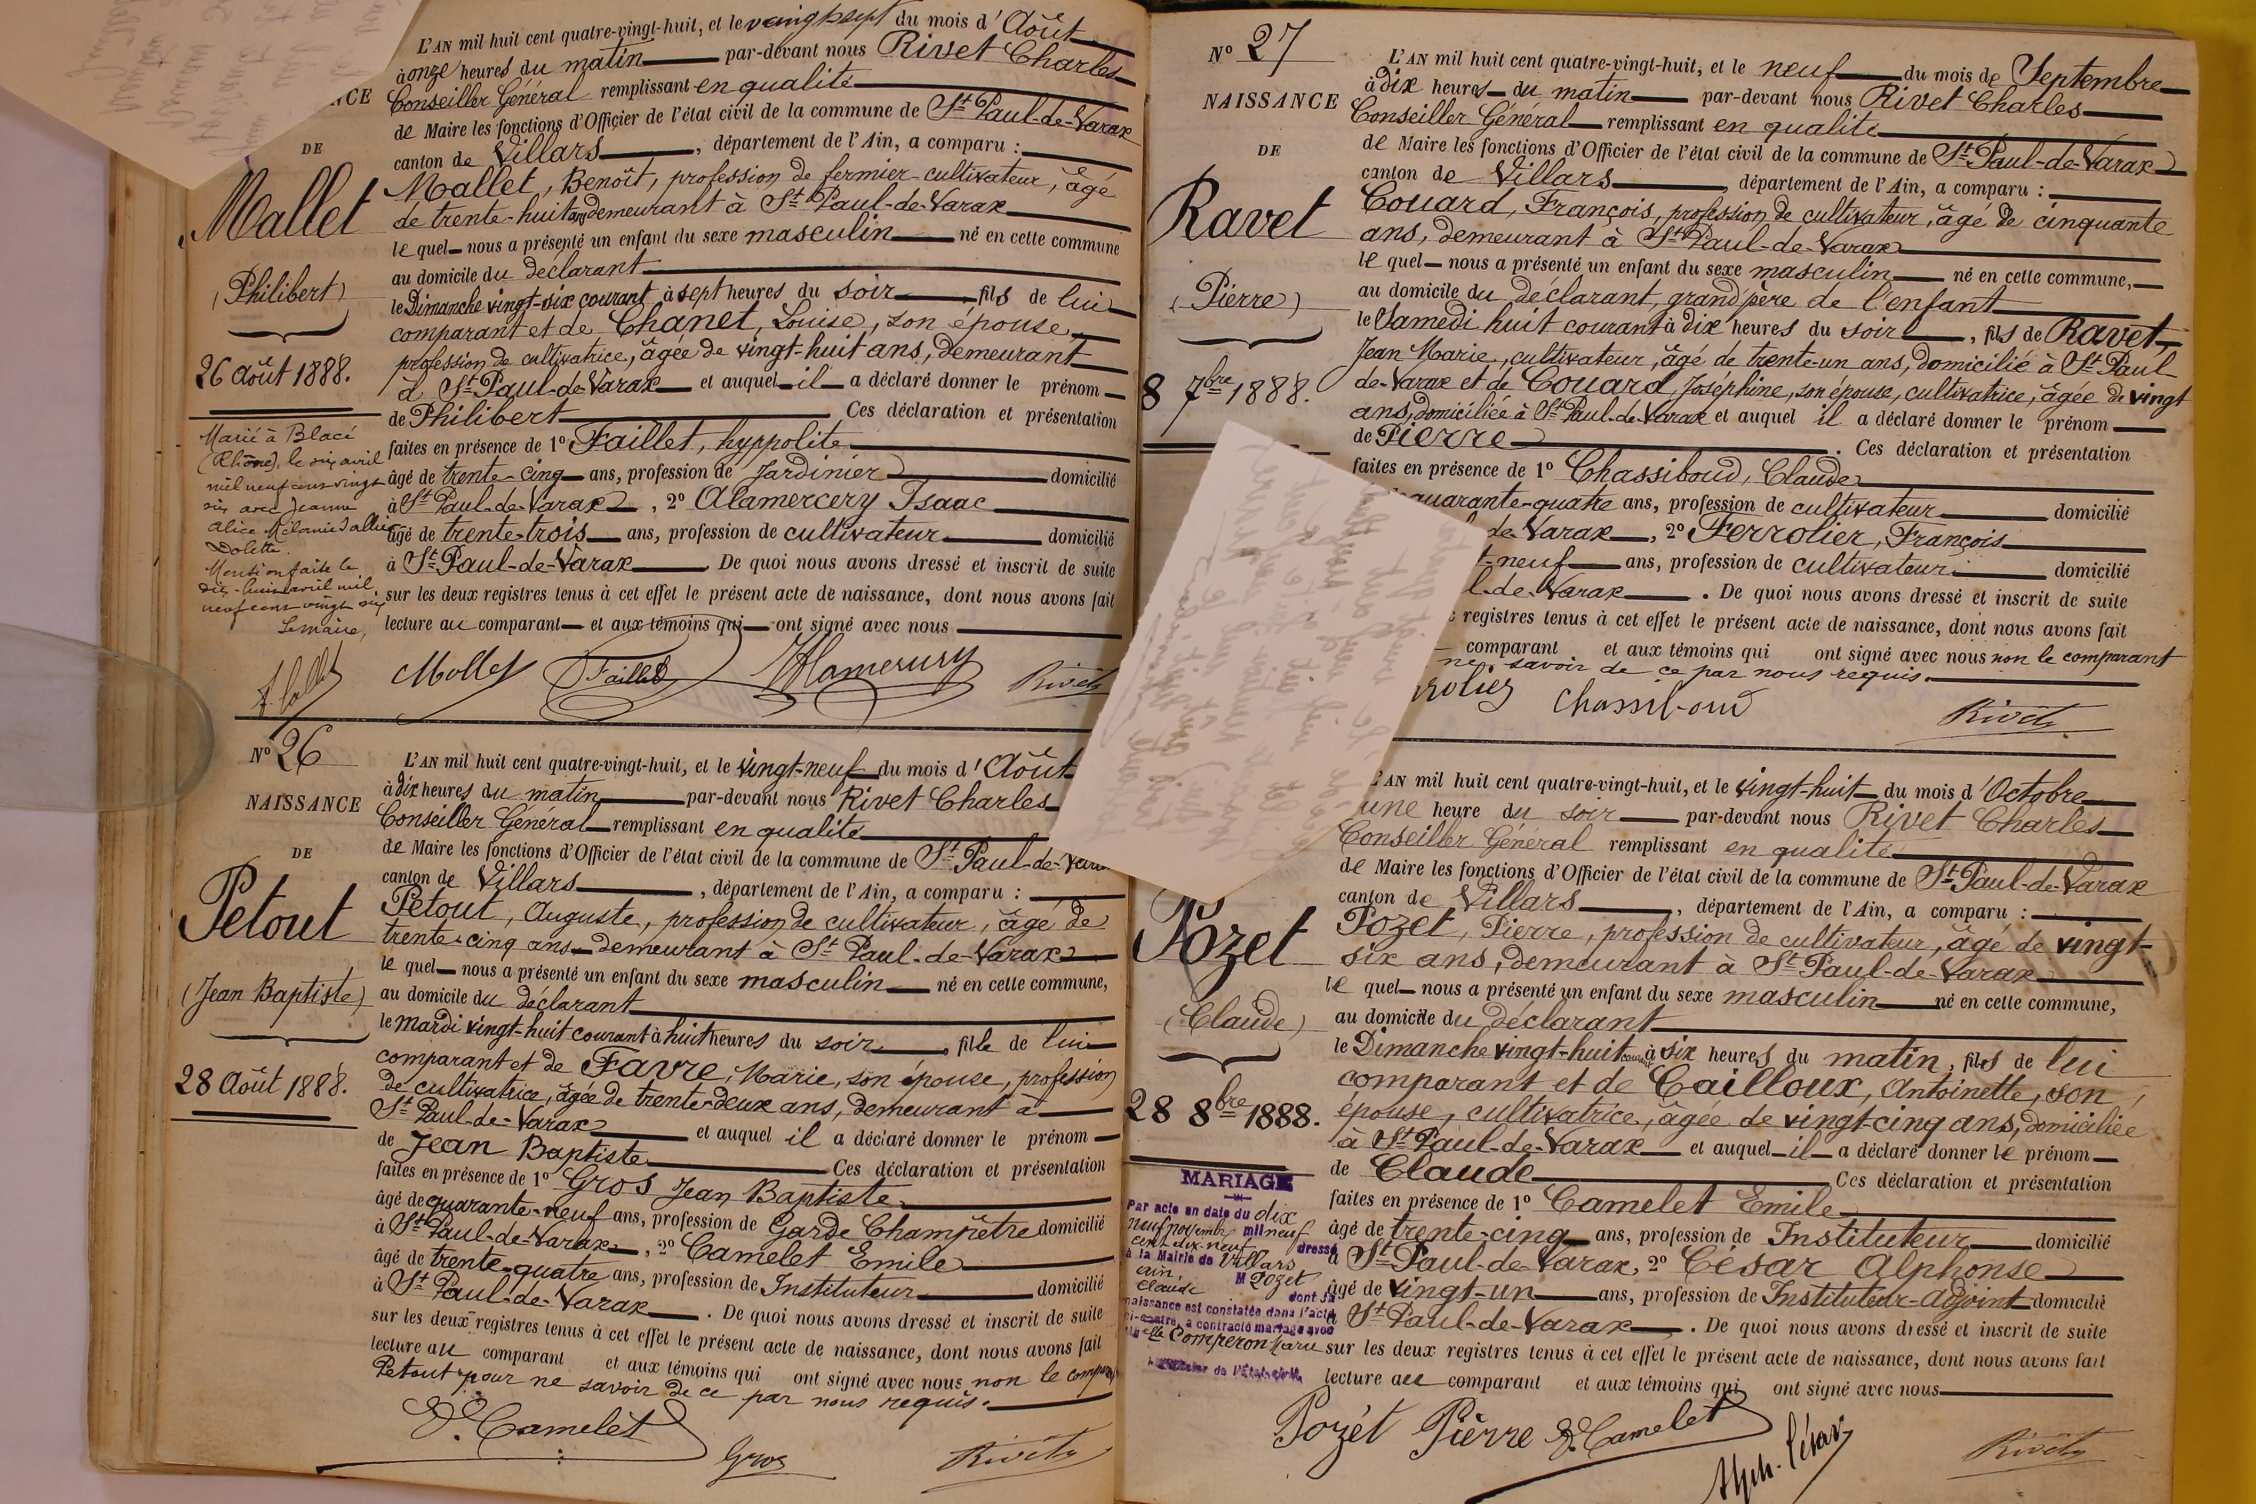 L'AN mil huit cent quatre-vingt-huit, et le vingt-sept du mois d'Août
à onze heures du matin par-devant nous Rivet Charles
Conseiller Général remplissant en qualité
de Maire les fonctions d'Officier de l'état civil de la commune de St Paul-de-Varax
canton de Villars, département de l'Ain, a comparu :
Mallet, Benoît, profession de fermier-cultivateur, âgé
de trente-huit ans demeurant à St Paul-de-Varax
le quel nous a présenté un enfant du sexe masculin né en cette commune
au domicile du déclarant
le Dimanche vingt-six courant à sept heures du soir, fils de lui
comparant et de Chanet, Louise, son épouse,
profession de cultivatrice, âgée de vingt-huit ans, demeurant
à St Paul-de-Varax et auquel il a déclaré donner le prénom
de Philibert Ces déclaration et présentation
faites en présence de 1° Faillet, hyppolite
âgé de trente-cinq ans, profession de Jardinier domicilié
à St Paul-de-Varax, 2° Alamercery Isaac
âgé de trente-trois ans, profession de cultivateur domicilié
à St Paul-de-Varax De quoi nous avons dressé et inscrit de suite
sur les deux registres tenus à cet effet le présent acte de naissance, dont nous avons fait
lecture au comparant et aux témoins qui ont signé avec nous
NCE
DE
Mallet
(Philibert)
26 Août 1888.
Marié à Blacé
(Rhône), le six avril
mil neuf cent vingt
six avec Jeanne
Alice Mélanie
Dolette.
Mention faite le
dix-huit avril mil
neuf cent vingt six
Le maire,
Mallet Faillet Alamercery Rivet
N° 26
NAISSANCE
DE
Petout
(Jean Baptiste)
28 Août 1888.
L'AN mil huit cent quatre-vingt-huit, et le vingt-neuf du mois d'Août
à dix heures du matin par-devant nous Rivet Charles
Conseiller Général remplissant en qualité
de Maire les fonctions d'Officier de l'état civil de la commune de St Paul-de-Vara
canton de Villars, département de l'Ain, a comparu :
Petout, Auguste, profession de cultivateur, âgé de
trente-cinq ans demeurant à St Paul-de-Varax
le quel nous a présenté un enfant du sexe masculin né en cette commune,
au domicile du déclarant
le mardi vingt-huit courant à huit heures du soir, fils de lui
comparant et de Favre, Marie, son épouse, profession
de cultivatrice, âgée de trente-deux ans, demeurant à
St Paul-de-Varax et auquel il a déclaré donner le prénom
de Jean Baptiste Ces déclaration et présentation
faites en présence de 1° Gros Jean Baptiste
âgé de quarante-neuf ans, profession de Garde Champêtre domicilié
à St Paul-de-Varax, 2° Camelet Emile
âgé de trente-quatre ans, profession de Instituteur domicilié
à St Paul-de-Varax. De quoi nous avons dressé et inscrit de suite
sur les deux registres tenus à cet effet le présent acte de naissance, dont nous avons fait
lecture au comparant et aux témoins qui ont signé avec nous non le
Petout pour ne savoir de ce par nous requis.
E. Camelet Gros Rivet
N° 27
NAISSANCE
DE
Ravet
(Pierre)
8 7bre 1888.
L'AN mil huit cent quatre-vingt-huit, et le neuf du mois de Septembre
à dix heures du matin par-devant nous Rivet Charles
Conseiller Général remplissant en qualité
de Maire les fonctions d'Officier de l'état civil de la commune de St Paul-de-Varax
canton de Villars, département de l'Ain, a comparu :
Couard, François, profession de cultivateur, âgé de cinquante
ans, demeurant à St Paul-de-Varax
le quel nous a présenté un enfant du sexe masculin né en cette commune,
au domicile du déclarant, grand'père de l'enfant
le Samedi huit courant à dix heures du soir, fils de Ravet,
Jean Marie, cultivateur, âgé de trente-un ans, domicilié à St Paul
de-Varax et de Couard, Joséphine, son épouse, cultivatrice, âgée de vingt
ans, domiciliée à St Paul-de-Varax et auquel il a déclaré donner le prénom
de Pierre. Ces déclaration et présentation
faites en présence de 1° Chassiboud, Claude
quarante-quatre ans, profession de cultivateur domicilié
de-Varax, 2° Ferrolier, François
t-neuf ans, profession de cultivateur domicilié
l-de-Varax. De quoi nous avons dressé et inscrit de suite
registres tenus à cet effet le présent acte de naissance, dont nous avons fait
comparant et aux témoins qui ont signé avec nous non le comparant
ne savoir de ce par nous requis.
rolier Chassiboud Rivet
L'AN mil huit cent quatre-vingt-huit, et le vingt-huit du mois d'Octobre
une heure du soir par-devant nous Rivet Charles
Conseiller Général remplissant en qualité
de Maire les fonctions d'Officier de l'état civil de la commune de St Paul-de-Varax
canton de Villars, département de l'Ain, a comparu :
Pozet, Pierre, profession de cultivateur, âgé de vingt-
six ans, demeurant à St Paul-de-Varax
le quel nous a présenté un enfant du sexe masculin né en cette commune,
au domicile du déclarant
le Dimanche vingt-huit courant à six heures du matin, fils de lui
comparant et de Cailloux, Antoinette, son
épouse, cultivatrice, âgée de vingt-cinq ans, domiciliée
à St Paul-de-Varax et auquel il a déclaré donner le prénom
de Claude Ces déclaration et présentation
faites en présence de 1° Camelet Emile
âgé de trente-cinq ans, profession de Instituteur domicilié
à St Paul-de-Varax, 2° César Alphonse
âgé de vingt-un ans, profession de Instituteur-Adjoint domicilié
à St Paul-de-Varax. De quoi nous avons dressé et inscrit de suite
sur les deux registres tenus à cet effet le présent acte de naissance, dont nous avons fait
lecture au comparant et aux témoins qui ont signé avec nous
Pozet
(Claude)
28 8bre 1888.
MARIAGE
Par acte en date du dix
neuf novembre mil neuf
cent dix-neuf dressé
à la Mairie de Villars
Ain M Pozet
Claude dont la
naissance est constatée dans l'acte
ci-contre, a contracté mariage avec
Melle Comperon Marie
L'Officier de l'État-civil,
Pozet Pierre E. Camelet Alph. César Rivet